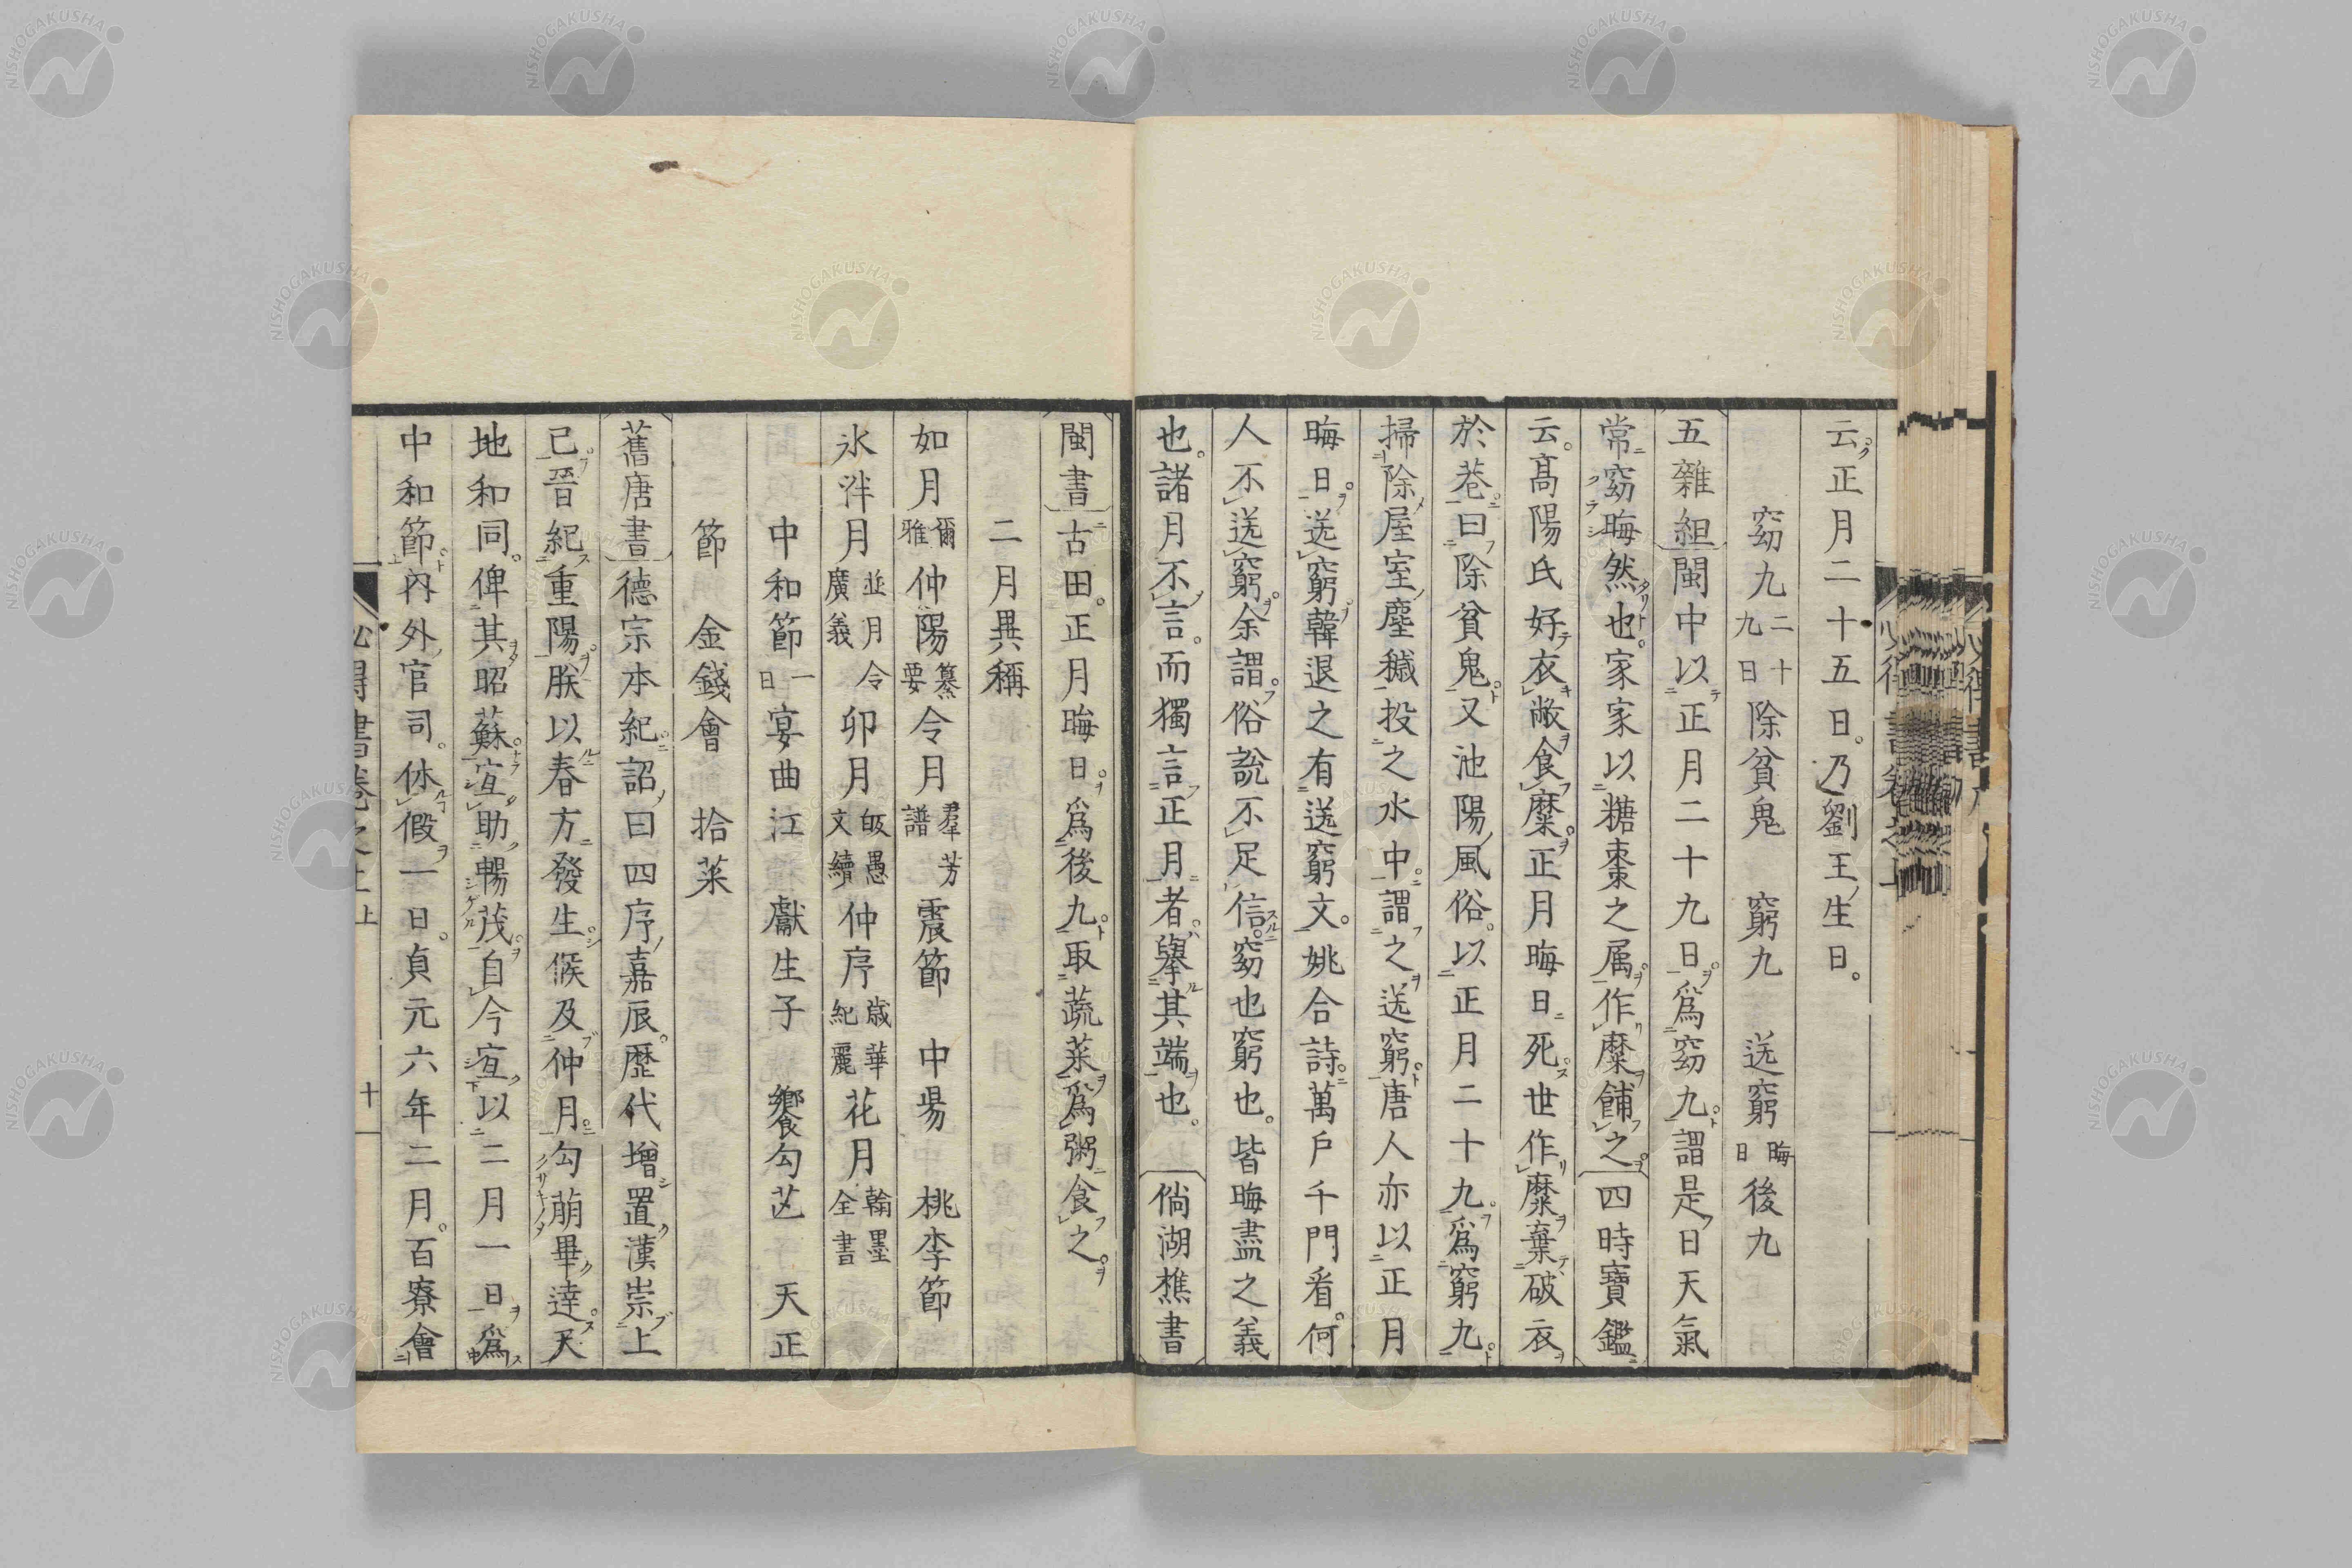 云正月二十五日。乃劉王生日。
窈九 二十九日 除貧鬼 窮九 送窮 晦日 後九
五雜組 閩中以正月二十九日爲窈九。謂是日天氣
常窈晦然也。家家以糖棗之属。作糜餔之。四時寶鑑
云。髙陽氏好衣敝食糜。正月晦日死。世作糜棄破衣
於巷。曰除貧鬼。又池陽風俗。以正月二十九。爲窮九。
掃除屋室塵穢。投之水中。謂之送窮。唐人亦以正月
晦日。送窮。韓退之有送窮文。姚合詩。萬戶千門看。何
人不送窮。余謂。俗說不足信。窈也窮也。皆晦盡之義
也。諸月不言。而獨言正月者。擧其端也。倘湖樵書
閩書 古田。正月晦日。爲後九。取蔬菜。爲粥食之。
二月異稱
如月 爾雅 仲陽 纂要 令月 羣芳譜 震節 中昜 桃李節
氷泮月 並月令廣義 卯月 皈愚文續 仲序 歲華紀麗 花月 翰墨全書
中和節 一日 宴曲江 獻生子 饗勾芒 天正
節 金錢會 拾菜
舊唐書 德宗本紀。詔曰四序嘉辰。歷代增置。漢崇上
已。晉紀重陽。朕以春方發生。候及仲月。勾萠畢達。天
地和同。俾其昭蘇。宜助暢茂。自今宜以二月一日爲
中和節。內外官司。休假一日。貞元六年二月。百寮會